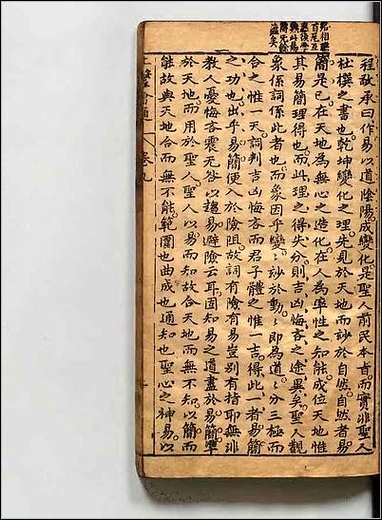 程敬承曰作易以道陰陽成變化是聖人前民本旨而實非聖人
杜撰之書也乾坤變化之理先見於天地而妙於自然自然者易
簡是已在天地為無心之造化在人為率性之知能成位天地惟
其易簡理得也而此理之得失分則吉凶悔吝之途異矣聖人觀
象係詞係此者也而象因乎變變妙於動動即為道道分三極而
合之惟一天詞判吉凶悔吝而君子體之惟一吉得此一者易簡
之功也出乎易簡便入於險阻故詞有險有易豈別有指耶無非
教人憂悔吝震无咎以趨易避險云耳固知易之道盡於易簡準
於天地而用於聖人聖人以易而知故合天地而無不知以簡而
能故與天地合而無不能範圍也曲成也通知也聖心之神易以
卷九